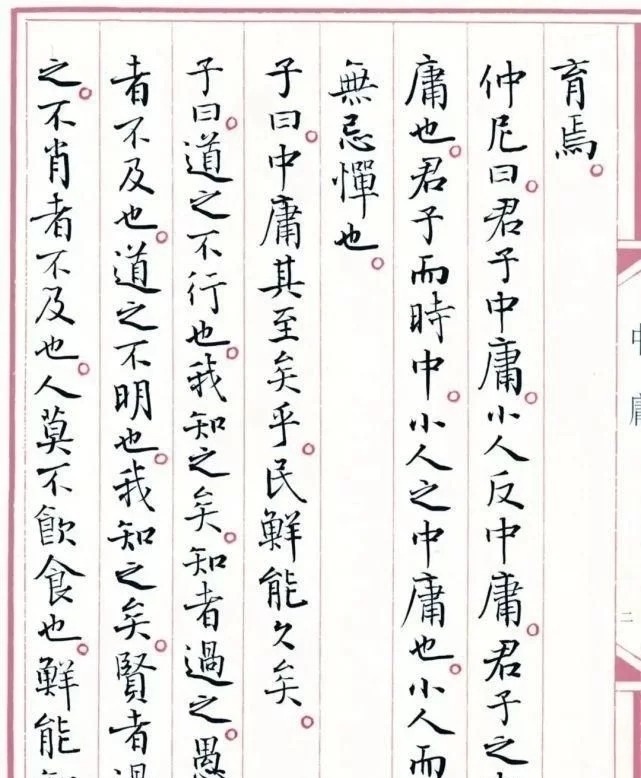 育焉。
仲尼曰。君子中庸。小人反中庸。君子之
庸也。君子而時中。小人之中庸也。小人而
無忌憚也。
子曰。中庸其至矣乎。民鮮能久矣。
子曰。道之不行也。我知之矣。知者過之。愚
者不及也。道之不明也。我知之矣。賢者過
之。不肖者不及也。人莫不飲食也。鮮能
中庸
二